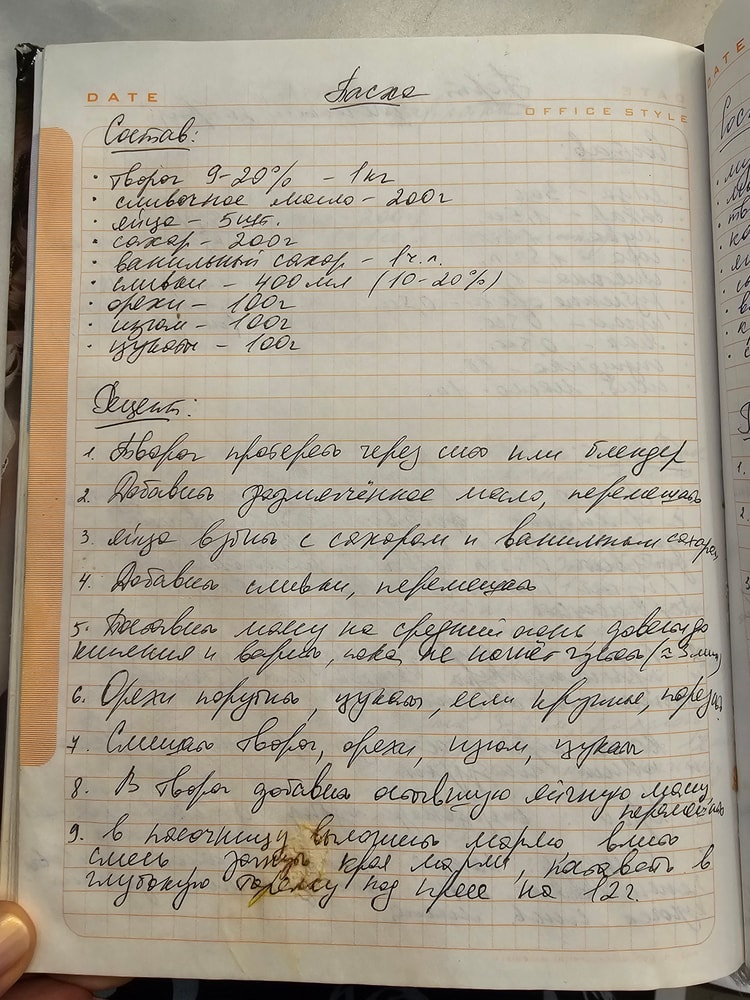 DATE
Пасха
OFFICE STYLE
Состав:
• творог 9-20% - 1кг
• сливочное масло - 200г
• яйца - 5шт.
• сахар - 200г
• ванильный сахар - 1ч.л.
• сливки - 400мл (10-20%)
• орехи - 100г
• изюм - 100г
• цукаты - 100г
Рецепт:
1. Творог протереть через сито или блендер
2. Добавить размягчённое масло, перемешать
3. яйца взбить с сахаром и ванильным сахаром
4. Добавить сливки, перемешать
5. Поставить массу на средний огонь, довести до
кипения и варить, пока не начнёт густеть (≈ 3 мин)
6. Орехи порубить, цукаты, если крупные, порезать
7. Смешать творог, орехи, изюм, цукаты
8. В творог добавить остывшую яичную массу,
перемешать
9. в пасочницу выложить марлю влить
смесь края марли, поставить в
глубокую тарелку под пресс на 12г.
DATE